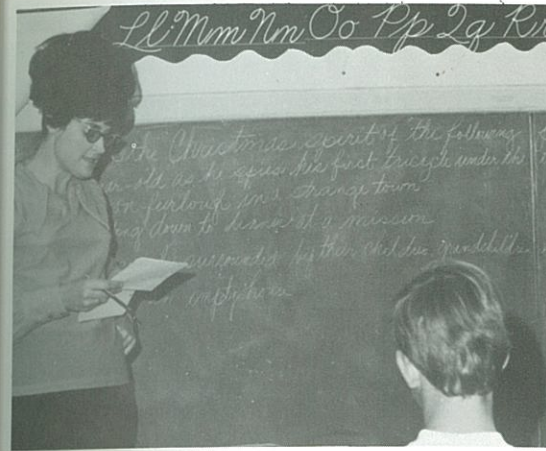 Ll Mm Nn Oo Pp Qq Rr
the "Christmas spirit of the following
-old as he spies his first tricycle under the
on furlough in a strange town
down to dinner at a mission
surrounded by their children, grandchildren
empty house